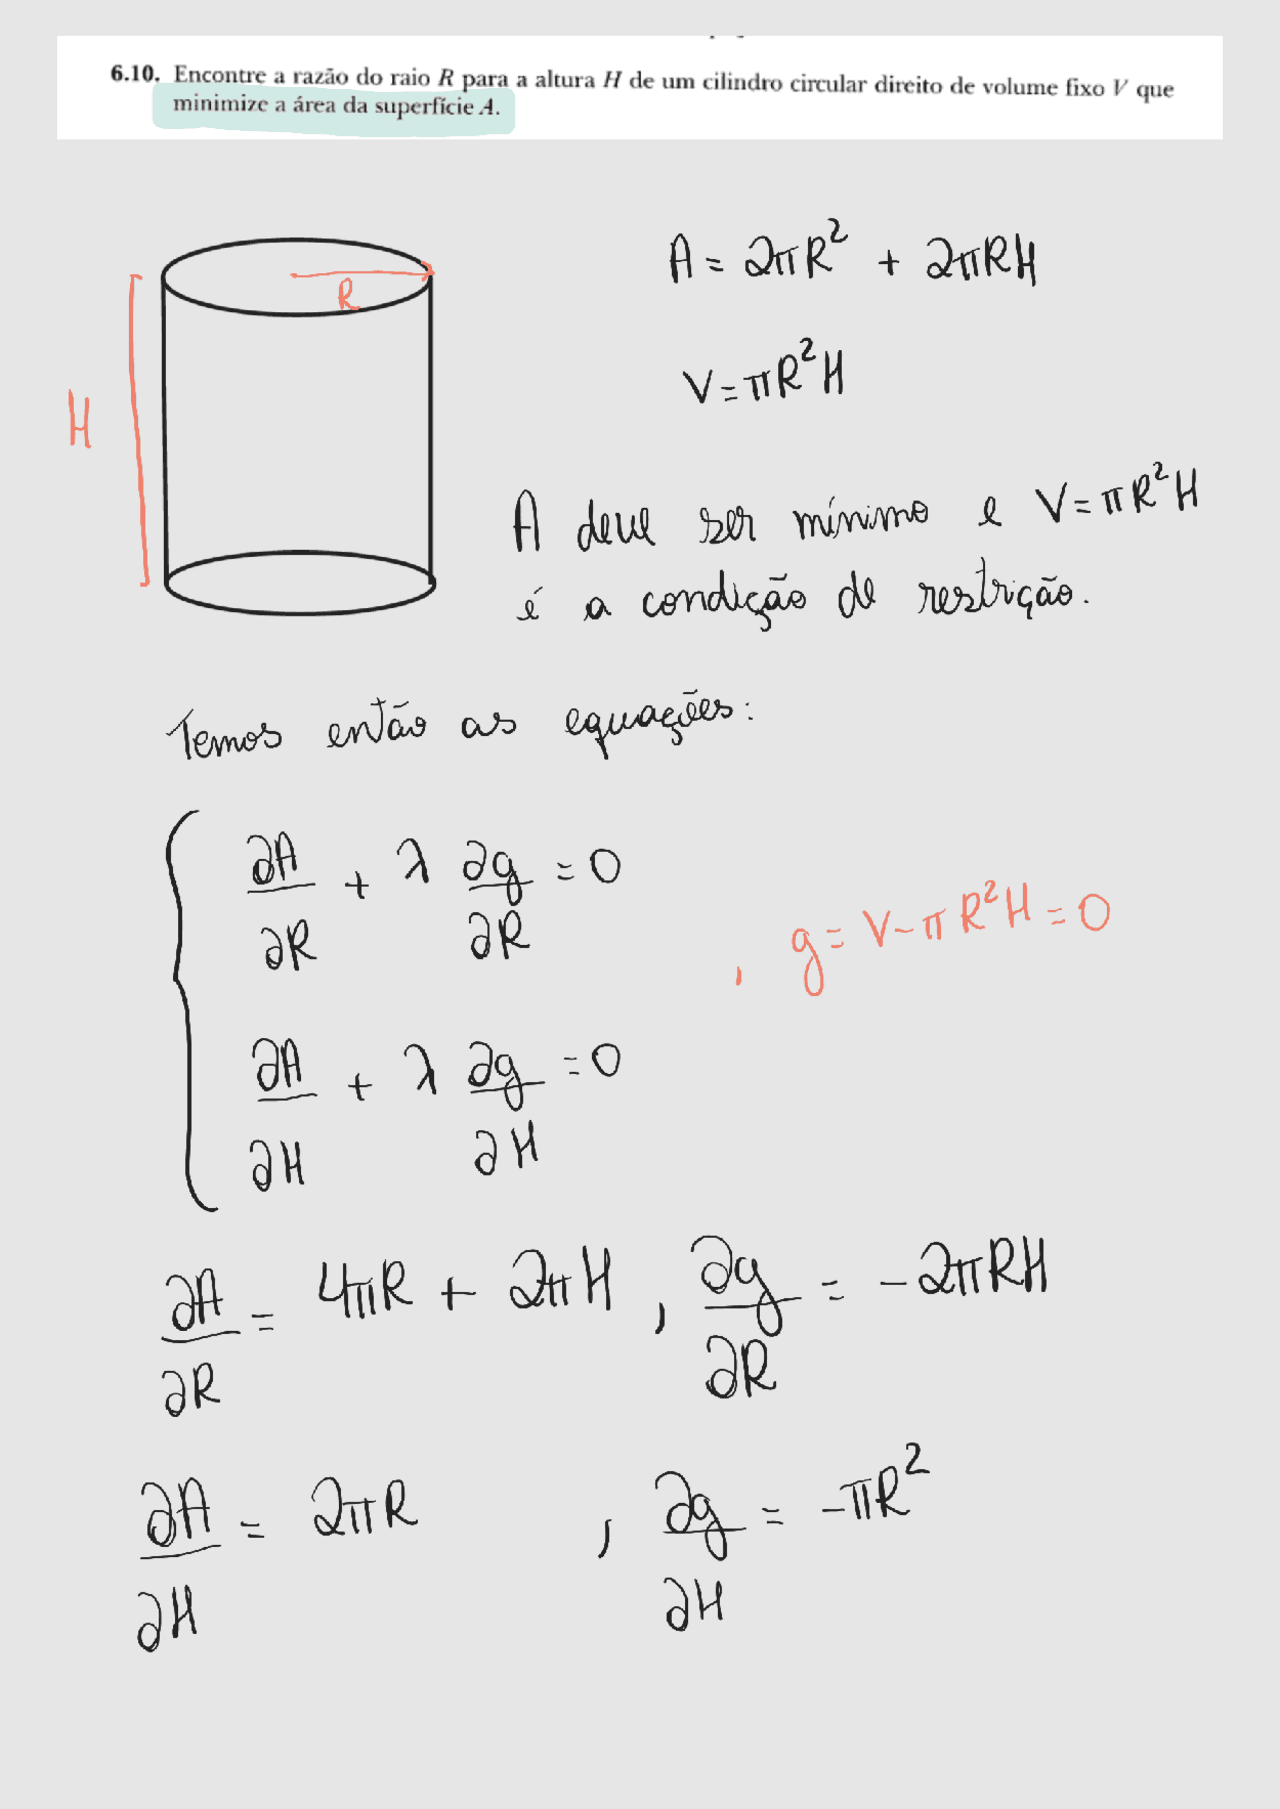 6.10. Encontre a razão do raio R para a altura H de um cilindro circular direito de volume fixo V que
minimize a área da superfície A.
A = 2πR² + 2πRH
R
V = πR²H
H
A deve ser mínimo e V = πR²H
é a condição de restrição.
Temos então as equações:
∂A/∂R + λ ∂g/∂R = 0
, g = V - πR²H = 0
∂A/∂H + λ ∂g/∂H = 0
∂A/∂R = 4πR + 2πH , ∂g/∂R = -2πRH
∂A/∂H = 2πR , ∂g/∂H = -πR²